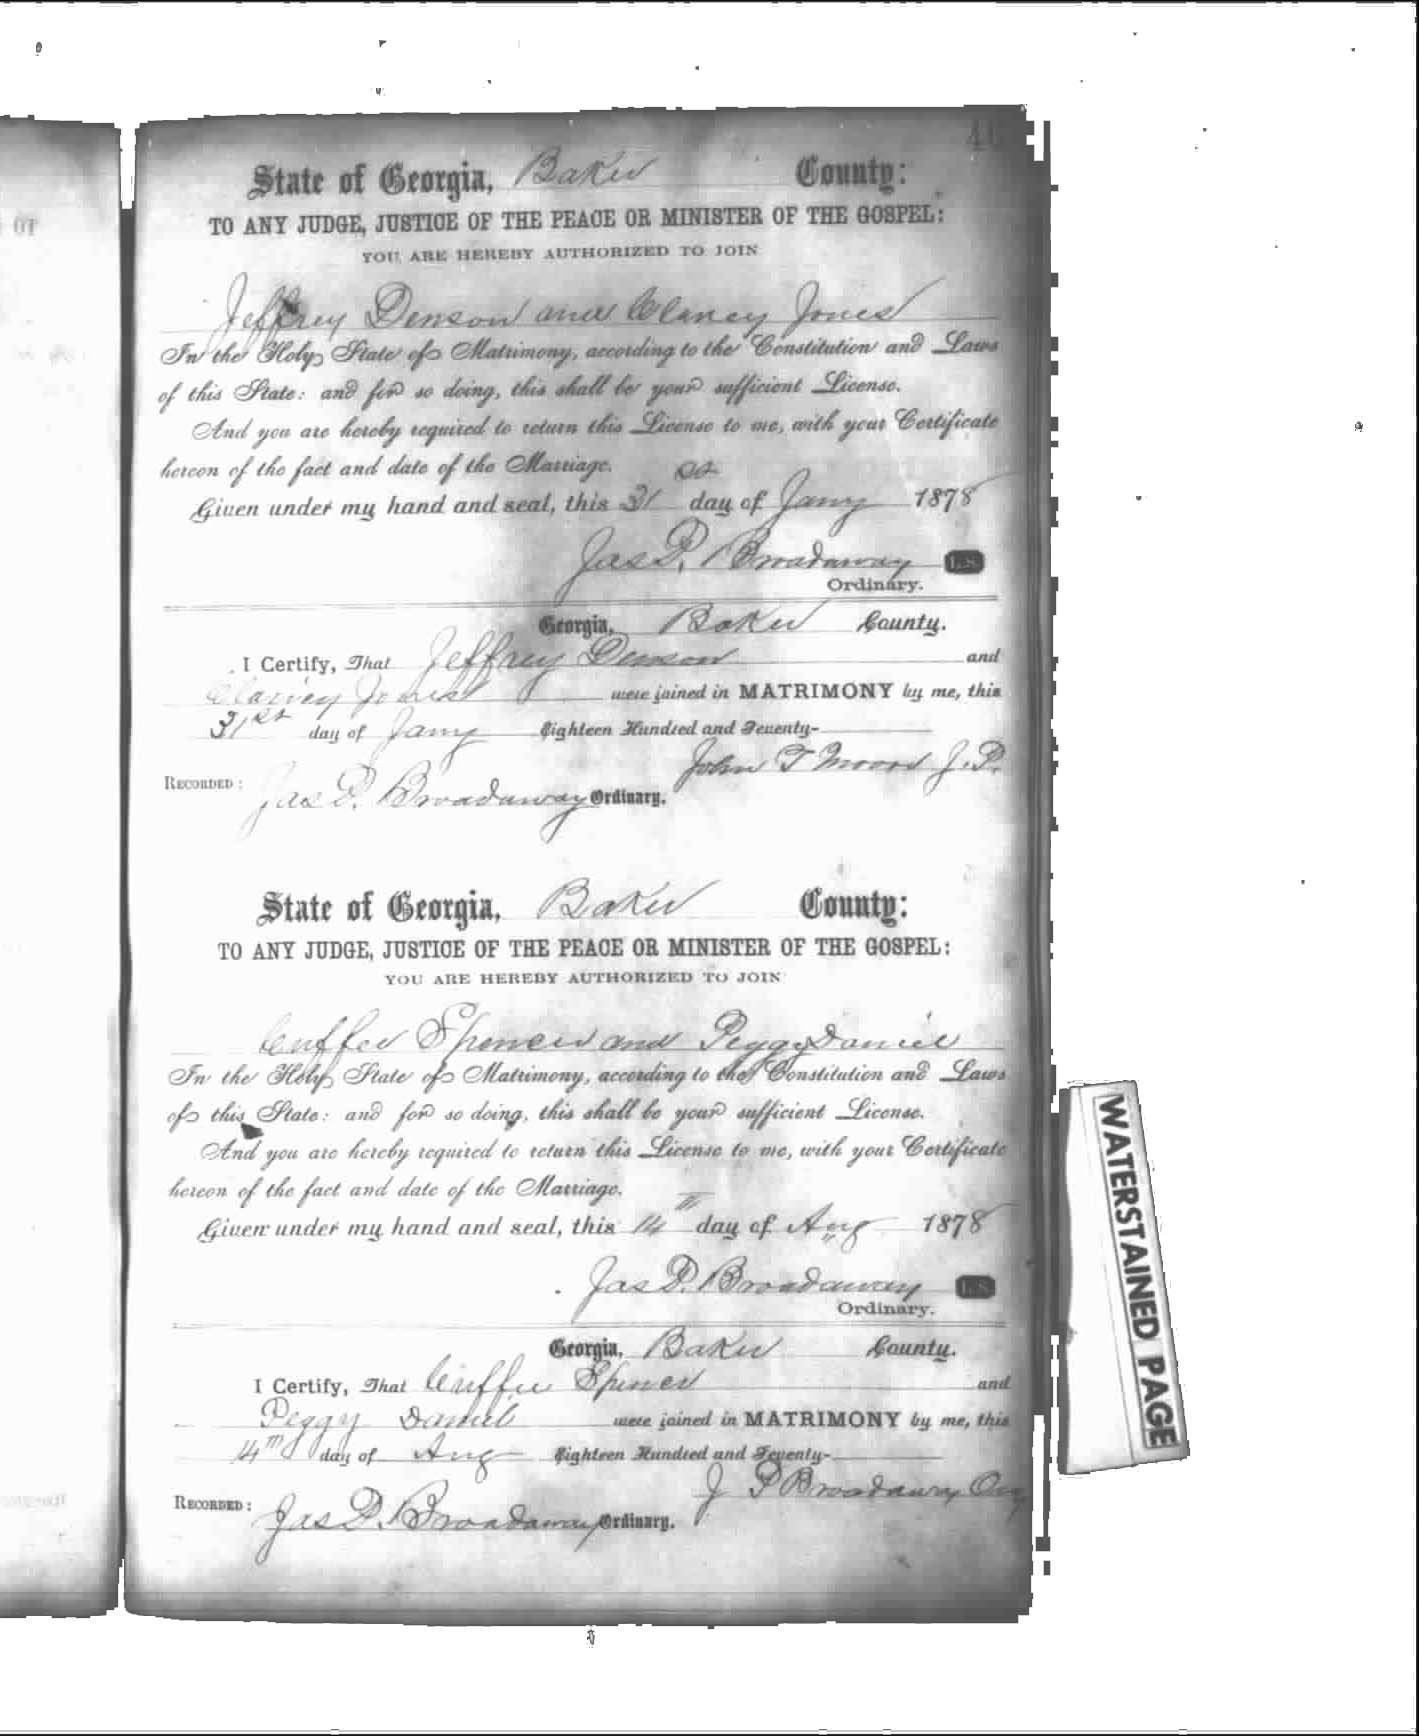 State of Georgia, Baker County:
TO ANY JUDGE, JUSTICE OF THE PEACE OR MINISTER OF THE GOSPEL:
YOU ARE HEREBY AUTHORIZED TO JOIN
Jeffrey Denson and Jones
In the Holy State of Matrimony, according to the Constitution and Laws
of this State: and for so doing, this shall be your sufficient License.
And you are hereby required to return this License to me, with your Certificate
hereon of the fact and date of the Marriage.
Given under my hand and seal, this 31st day of Jany 1878
Jas P. Broadaway L.S.
Ordinary.
Georgia, Baker County.
I Certify, That Jeffrey Denson and
Jones were joined in MATRIMONY by me, this
31st day of Jany Eighteen Hundred and Seventy-
John T J.P.
RECORDED: Jas P. Broadaway Ordinary.
State of Georgia, Baker County:
TO ANY JUDGE, JUSTICE OF THE PEACE OR MINISTER OF THE GOSPEL:
YOU ARE HEREBY AUTHORIZED TO JOIN
Cuffee Spencer and Peggy Daniel
In the Holy State of Matrimony, according to the Constitution and Laws
of this State: and for so doing, this shall be your sufficient License.
And you are hereby required to return this License to me, with your Certificate
hereon of the fact and date of the Marriage.
Given under my hand and seal, this 14th day of Aug 1878
Jas P. Broadaway L.S.
Ordinary.
Georgia, Baker County.
I Certify, That Cuffie Spencer and
Peggy Daniel were joined in MATRIMONY by me, this
14th day of Aug Eighteen Hundred and Seventy-
J P Broadaway Ory
RECORDED: Jas P. Broadaway Ordinary.
WATERSTAINED PAGE